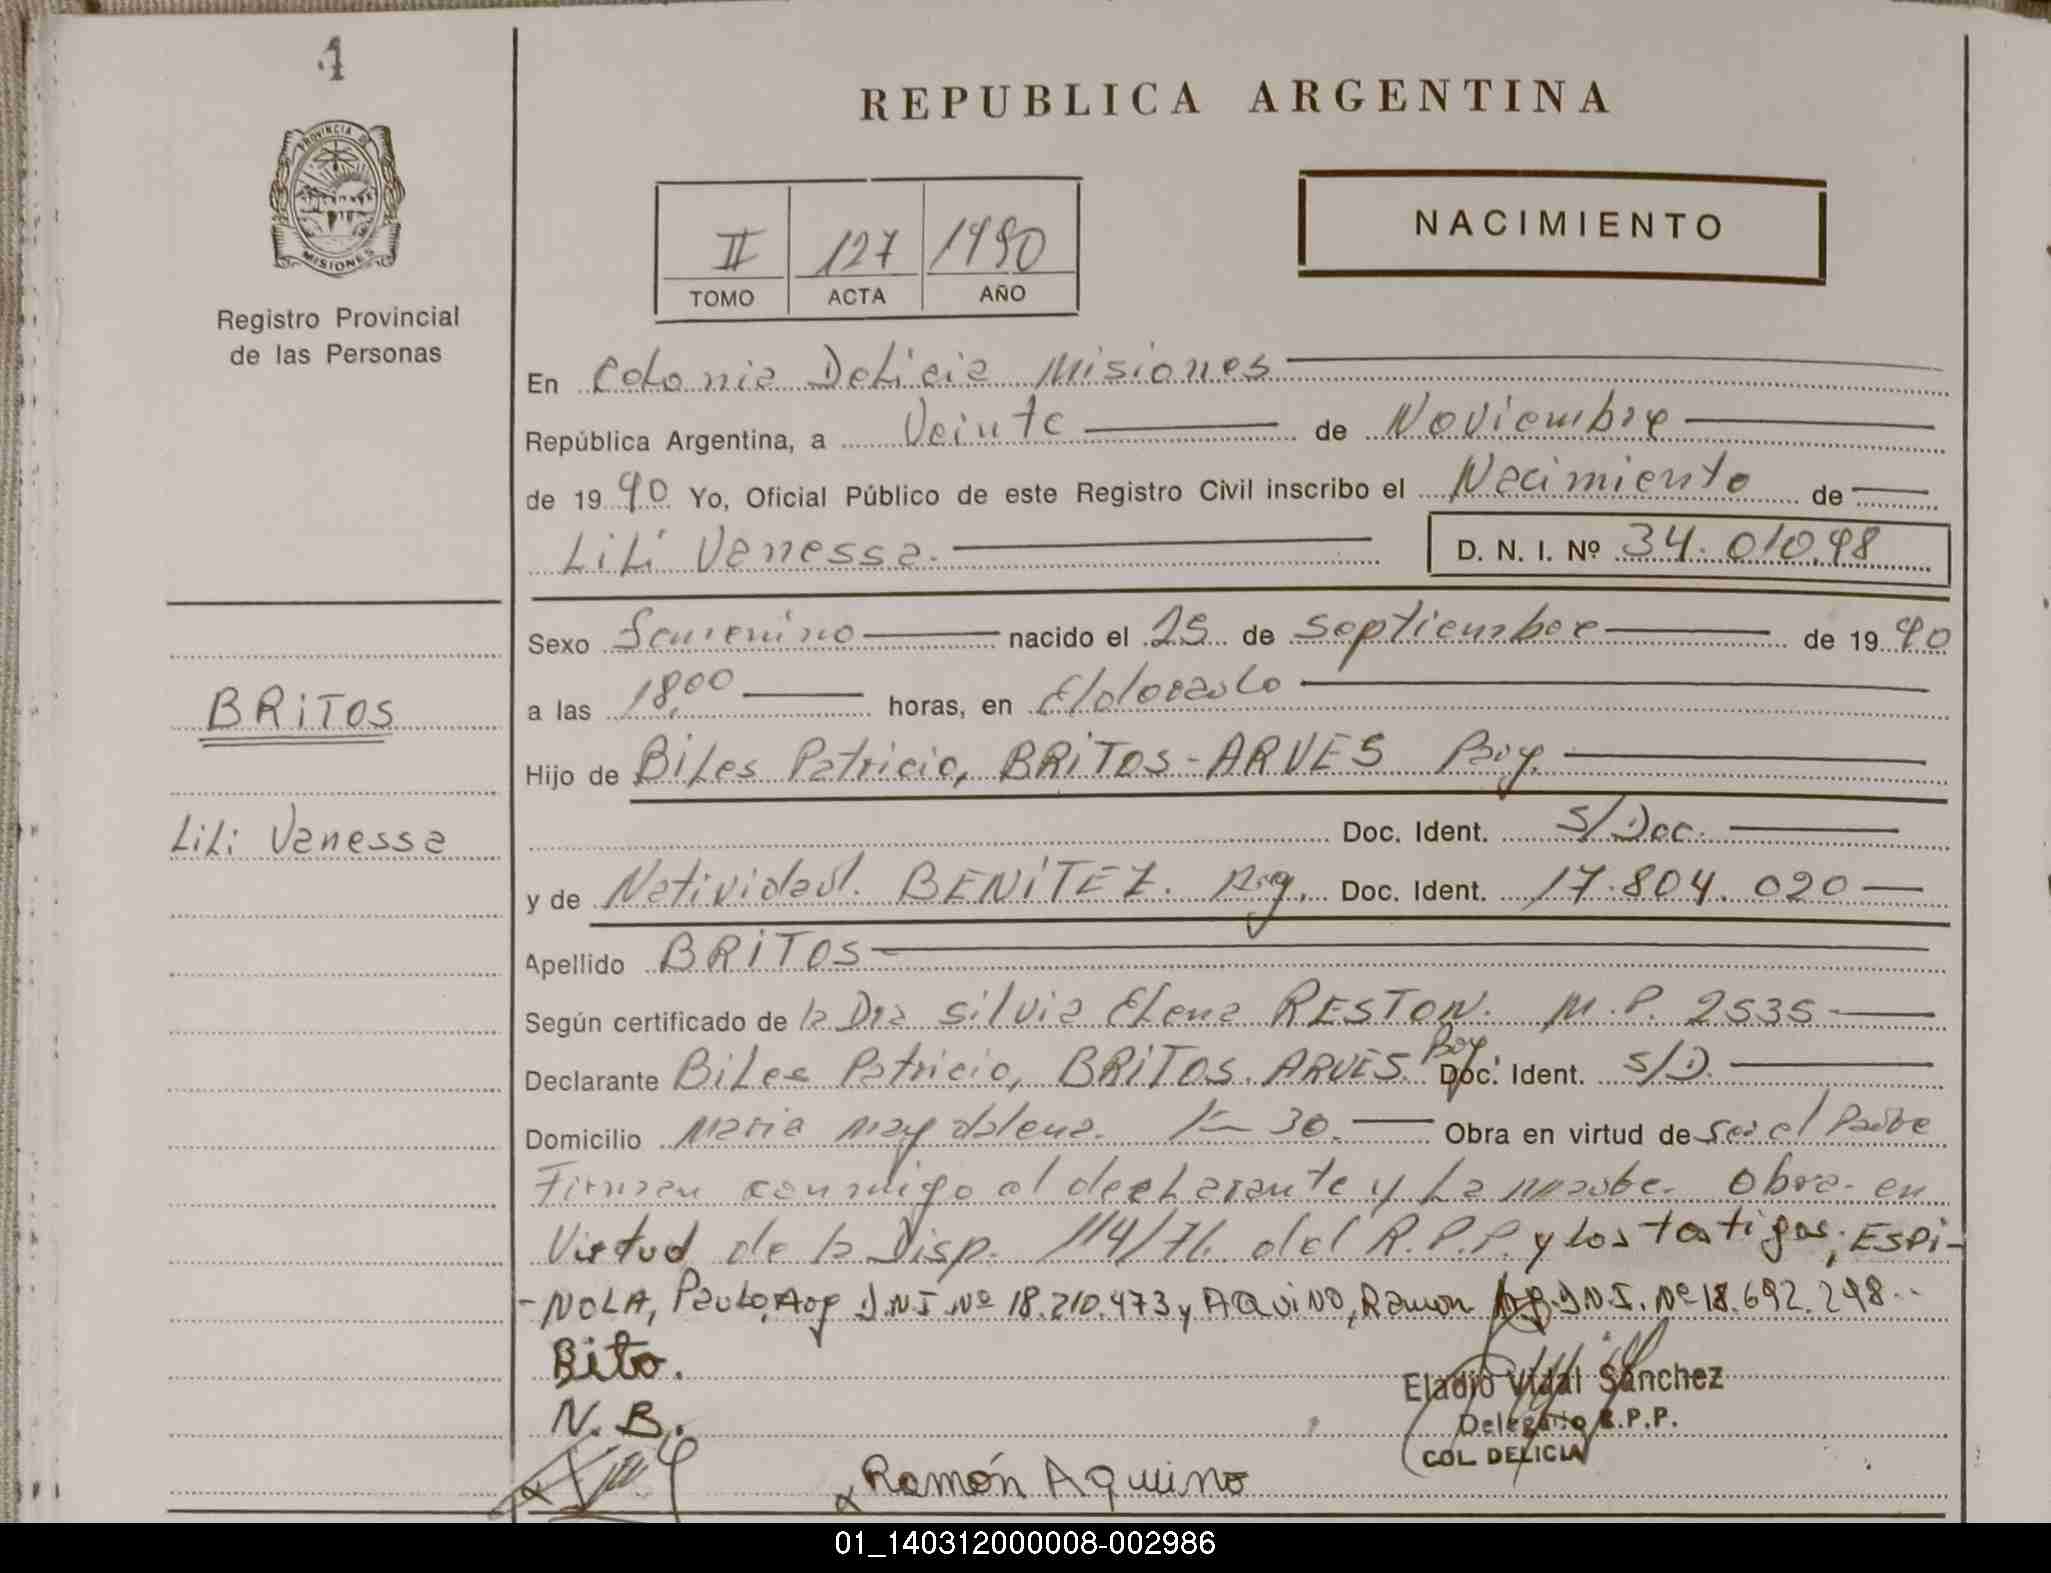 1
REPUBLICA ARGENTINA
PROVINCIA DE
MISIONES
Registro Provincial
de las Personas
II 127 1990
TOMO ACTA AÑO
NACIMIENTO
En Colonia Delicia Misiones
República Argentina, a Veinte de Noviembre
de 19 90 Yo, Oficial Público de este Registro Civil inscribo el Nacimiento de
Lili Vanessa.
D. N. I. Nº 34.010.98
Sexo Femenino nacido el 25 de septiembre de 19 90
BRITOS
a las 18,00 horas, en Eldorado
Hijo de Biles Patricio, BRITOS-ARVES Poy.
Lili Vanessa
Doc. Ident. S/Doc.
y de Natividad. BENITEZ. Arg. Doc. Ident. 17.804.020
Apellido BRITOS
Según certificado de la Dra Silvia Elena RESTON. M.P. 2535
Declarante Biles Patricio, BRITOS. ARVES. Poy. Doc. Ident. S/D.
Domicilio Maria Magdalena. Km 30. Obra en virtud de ser el Padre
Firman conmigo el declarante y la madre. Obra en
Virtud de la Disp. 114/76. del R.P.P. y los testigos; ESPI-
-NOLA, Paulo, Arg D.N.I. Nº 18.210.473 y AQUINO, Ramon Arg. D.N.I. Nº 18.692.298..
Bito.
N. B.
Eladio Vidal Sánchez
Delegado R.P.P.
COL DELICIA
Ramón Aquino
01_140312000008-002986